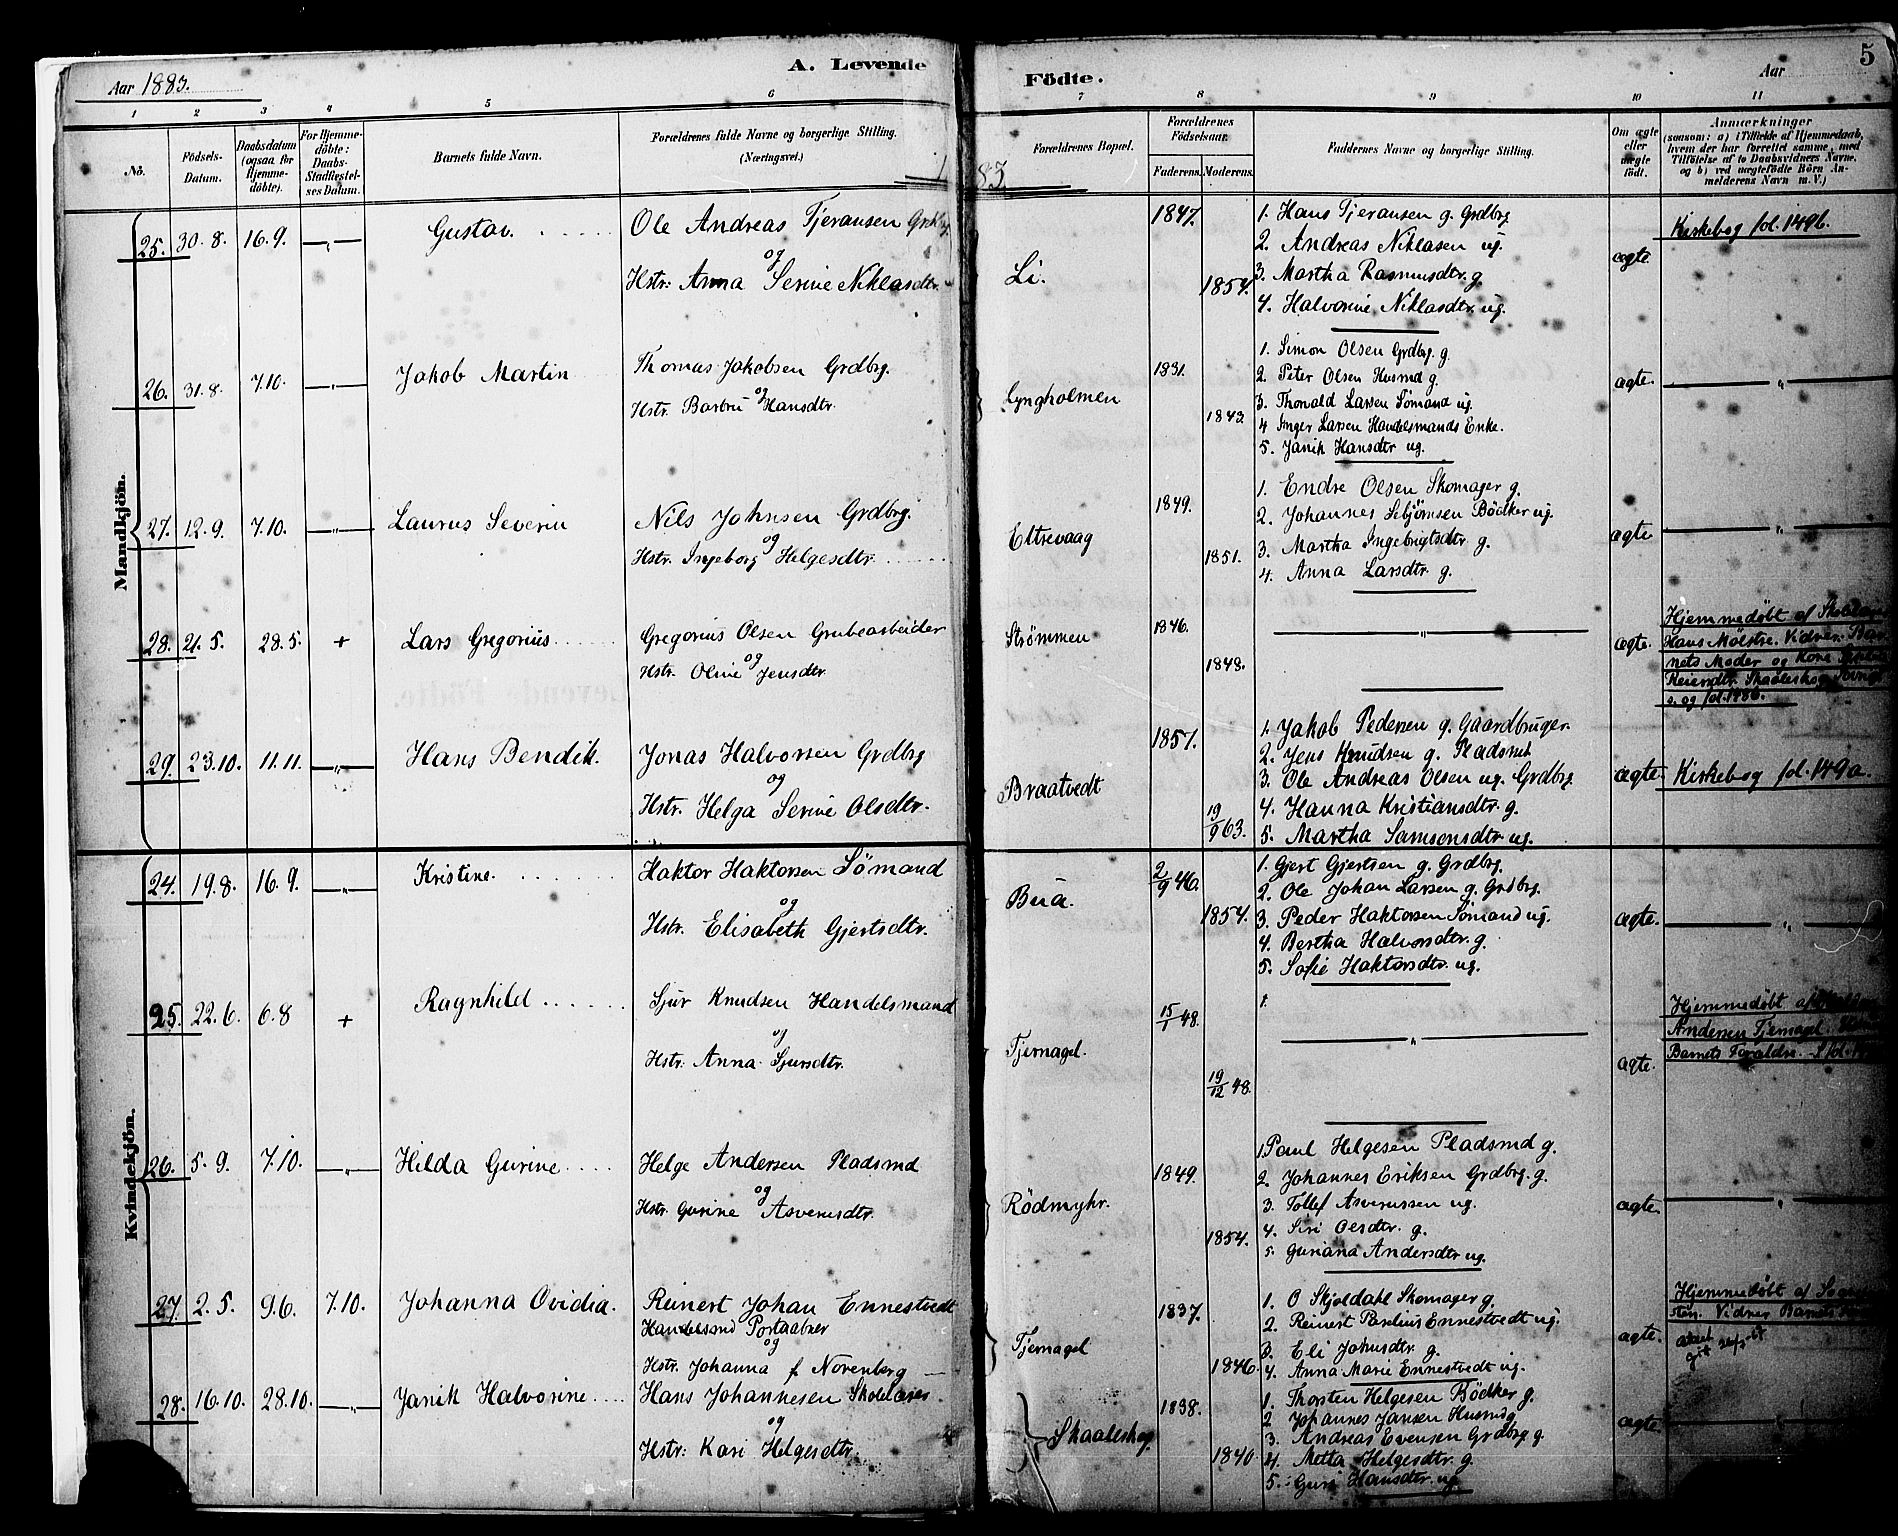 Aar 1883.
A. Levende
Födte.
Aar
5
1 2 3 4 5 6 7 8 9 10 11
No.
Födsels-Datum.
Daabsdatum (ogsaa for Hjemmedöbte).
For Hjemmedöbte: Daabs-Stadfæstelses Datum.
Barnets fulde Navn.
Forældrenes fulde Navne og borgerlige Stilling.
(Næringsvei.)
Forældrenes Bopæl.
Forældrenes Födselsaar.
Faderens. Moderens.
Faddernes Navne og borgerlige Stilling.
Om ægte eller uægte födt.
Anmærkninger
(saasom: a) i Tilfælde af Hjemmedaab,
hvem der har forrettet samme, med
Tilföielse af to Daabsvidners Navne,
og b) ved uægtefödte Börn An-
melderens Navn m. V.)
Mandkjön.
25. 30.8. 16.9. —„— Gustav. Ole Andreas Tjeransen Grdbrg.
og
Hstr: Anna Serine Niklasdtr.
Li. 1847. 1854.
1. Hans Tjeransen g. Grdbrg
2. Andreas Niklasen ug.
3. Martha Rasmusdtr. g.
4. Halvorine Niklasdtr. ug.
ægte. Kirkebog fol. 149b.
26. 31.8. 7.10. —„— Jakob Martin Thomas Jakobsen Grdbrg.
og
Hstr. Barbru Hansdtr.
Lyngholmen 1831. 1843.
1. Simon Olsen Grdbrg. g.
2. Peter Olsen Husmd g.
3. Thorald Larsen Sömand ug.
4 Inger Larsen Handelsmands Enke.
5. Janik Hansdtr ug.
ægte. —„—
27. 12.9. 7.10. —„— Laurus Severin Nils Johnsen Grdbrg.
og
Hstr. Ingeborg Helgesdtr.
Eltrevaag 1849. 1851.
1. Endre Olsen Skomager g.
2. Johannes Sebjörnsen Bödker ug.
3. Martha Ingebrigtsdtr. g.
4. Anna Larsdtr. g.
ægte. —„—
28. 21.5. 28.5. + Lars Gregorius Gregorius Olsen Grubearbeider
og
Hstr Oline Jensdtr.
Strömmen 1846. 1848. —„— ægte.
Hjemmedöbt af
Hans Molstre. Vidner: Bar-
nets Moder og Kone
Reiersdtr. Skaaleskog
s. og fol. 148b.
29. 23.10. 11.11. —„— Hans Bendik. Jonas Halvorsen Grdbrg
og
Hstr. Helga Serine Olsdtr.
Braatvedt 1857. 19/9 63.
1. Jakob Pedersen g. Gaardbruger.
2. Jens Knudsen g. Pladsmd.
3. Ole Andreas Olsen ug. Grdbrg.
4. Hanna Kristiansdtr. g.
5. Martha Samsonsdtr. ug.
ægte. Kirkebog fol. 149a.
Kvindekjön.
24. 19.8. 16.9. —„— Kristine. Haktor Haktorsen Sömand
og
Hstr. Elisabeth Gjertsdtr.
Bua. 2/9 46. 1854.
1. Gjert Gjertsen g. Grdbrg.
2. Ole Johan Larsen g. Grdbrg.
3. Peder Haktorsen Sömand ug.
4. Bertha Halvorsdtr. g.
5. Sofie Haktorsdtr. ug.
ægte. —„—
25. 22.6. 6.8 + Ragnhild Sjur Knudsen Handelsmand
og
Hstr. Anna Sjursdtr.
Tjernagel. 15/1 48. 19/12 48. 1. —„— ægte.
Hjemmedöbt af
Andersen Tjernagel.
Barnets Forældre
26. 5.9. 7.10. —„— Hilda Gurine Helge Andersen Pladsmd
og
Hstr. Gurine Asverusdtr.
Rödmyhr. 1849. 1854.
1. Paul Helgesen Pladsmd g.
2. Johannes Eriksen Grdbrg. g.
3. Tollef Asverussen ug.
4. Siri Olsdtr. g.
5. Guriana Andersdtr ug.
ægte. —„—
27. 2.5. 9.6. 7.10. Johanna Ovidia. Reinert Johan Ennestvedt
Handelsmd Postaabner
og
Hstr. Johanna f. Norenberg
Tjernagel 1837. 1846.
1. O Skjoldahl Skomager g.
2. Reinert Paulius Ennestvedt ug.
3. Eli Johnsdtr. g.
4. Anna Marie Ennestvedt ug.
ægte.
Hjemmedöbt af
sten. Vidner Barnets
28. 16.10. 28.10. —„— Janik Halvorine Hans Johannesen Skolelærer
og
Hstr: Kari Helgesdtr.
Skaaleskog. 1838. 1840.
1. Thorsten Helgesen Bödker g.
2 Johannes Jansen Husmd g
3. Andreas Evensen Grdbrg g.
4. Metta Helgesdtr. g.
5. Guri Hansdtr. ug.
ægte. —„—